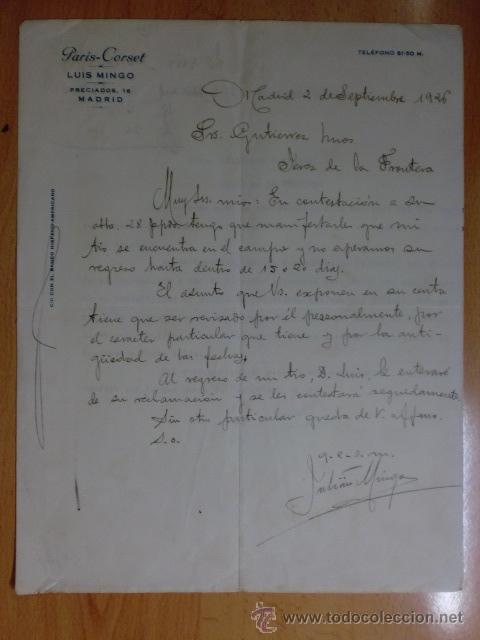 París-Corset
LUIS MINGO
PRECIADOS, 16
MADRID
TELÉFONO 51-50 M.
C/C CON EL BANCO HISPANO-AMERICANO
Madrid 2 de Septiembre 1926
Srs. Gutierrez hnos
Jerez de la Frontera
Muy Srs. mios: En contestación a su
atta. 28 ppdo tengo que manifestarles que mi
tio se encuentra en el campo y no esperamos su
regreso hasta dentro de 15 o 20 dias.
El asunto que Vs. exponen en su carta
tiene que ser revisado por él personalmente, por
el caracter particular que tiene y por la anti-
güedad de las fechas.
Al regreso de mi tio, D. Luis, le enteraré
de su reclamación y se les contestará seguidamente.
Sin otro particular queda de V. affmo.
S.s.
q.e.s.m.
Julián Mingo
www.todocoleccion.net